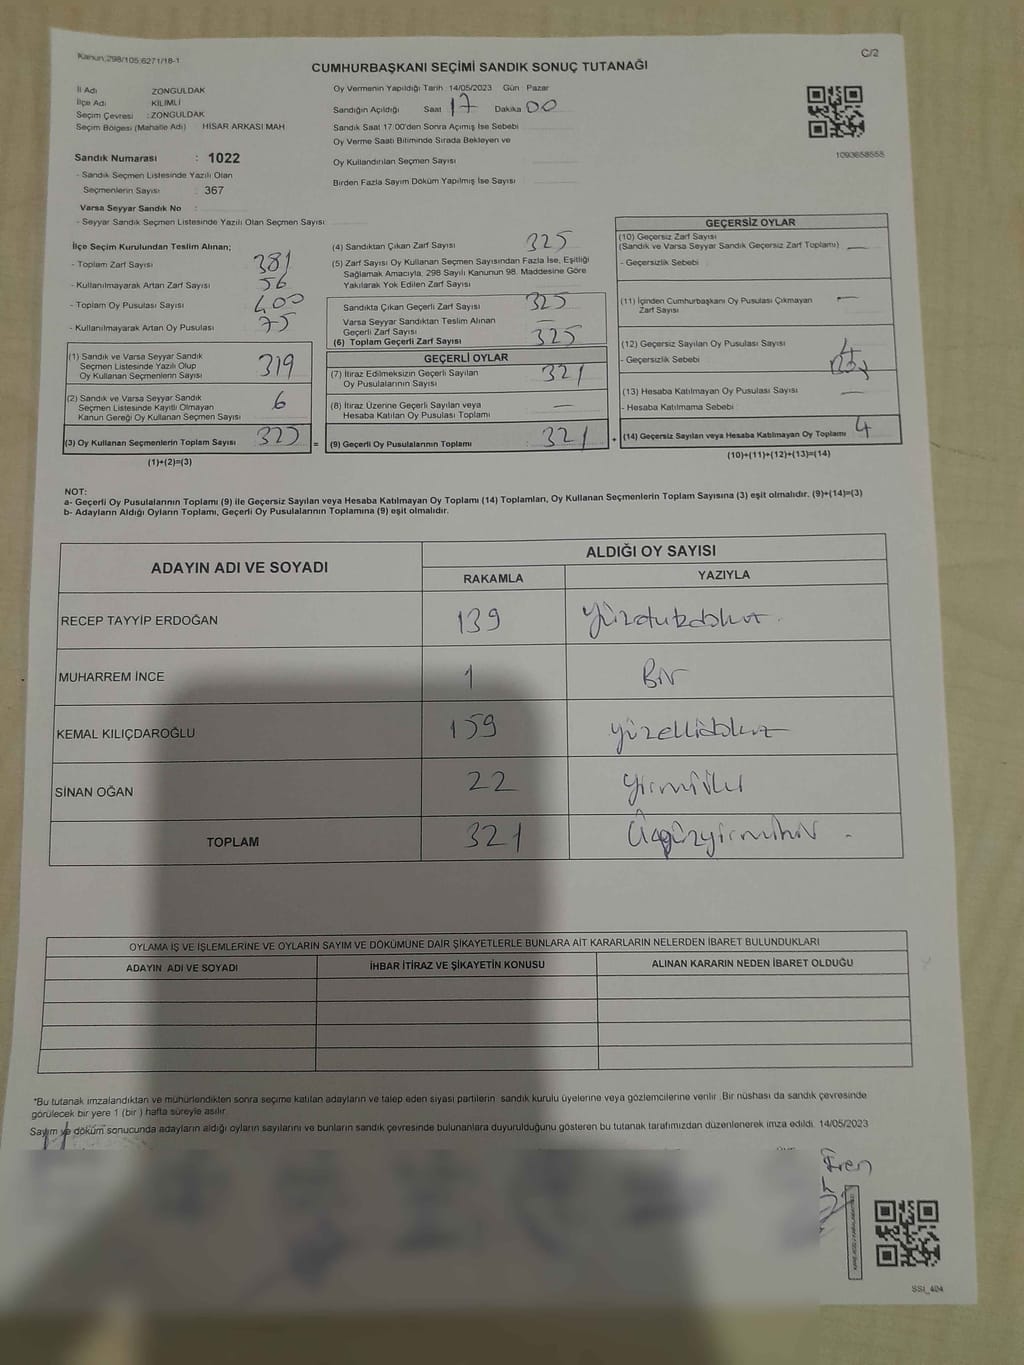 Kanun:298/105:6271/18-1
C/2
CUMHURBAŞKANI SEÇİMİ SANDIK SONUÇ TUTANAĞI
İl Adı ZONGULDAK
İlçe Adı KİLİMLİ
Seçim Çevresi : ZONGULDAK
Seçim Bölgesi (Mahalle Adı) HİSAR ARKASI MAH
Oy Vermenin Yapıldığı Tarih 14/05/2023 Gün Pazar
Sandığın Açıldığı Saat 17 Dakika 00
Sandık Saat 17:00'den Sonra Açımış İse Sebebi
Oy Verme Saati Bitiminde Sırada Bekleyen ve
Oy Kullandırılan Seçmen Sayısı
Birden Fazla Sayım Döküm Yapılmış İse Sayısı
1093658555
Sandık Numarası : 1022
- Sandık Seçmen Listesinde Yazılı Olan
Seçmenlerin Sayısı : 367
Varsa Seyyar Sandık No :
- Seyyar Sandık Seçmen Listesinde Yazılı Olan Seçmen Sayısı
İlçe Seçim Kurulundan Teslim Alınan;
- Toplam Zarf Sayısı 381
- Kullanılmayarak Artan Zarf Sayısı 56
- Toplam Oy Pusulası Sayısı 400
- Kullanılmayarak Artan Oy Pusulası 75
(1) Sandık ve Varsa Seyyar Sandık
Seçmen Listesinde Yazılı Olup
Oy Kullanan Seçmenlerin Sayısı 319
(2) Sandık ve Varsa Seyyar Sandık
Seçmen Listesinde Kayıtlı Olmayan
Kanun Gereği Oy Kullanan Seçmen Sayısı 6
(3) Oy Kullanan Seçmenlerin Toplam Sayısı 325 =
(1)+(2)=(3)
(4) Sandıktan Çıkan Zarf Sayısı 325
(5) Zarf Sayısı Oy Kullanan Seçmen Sayısından Fazla İse, Eşitliği
Sağlamak Amacıyla, 298 Sayılı Kanunun 98. Maddesine Göre
Yakılarak Yok Edilen Zarf Sayısı
Sandıkta Çıkan Geçerli Zarf Sayısı 325
Varsa Seyyar Sandıktan Teslim Alınan
Geçerli Zarf Sayısı —
(6) Toplam Geçerli Zarf Sayısı 325
GEÇERLİ OYLAR
(7) İtiraz Edilmeksizin Geçerli Sayılan
Oy Pusulalarının Sayısı 321
(8) İtiraz Üzerine Geçerli Sayılan veya
Hesaba Katılan Oy Pusulası Toplamı —
(9) Geçerli Oy Pusulalarının Toplamı : 321 +
GEÇERSİZ OYLAR
(10) Geçersiz Zarf Sayısı
(Sandık ve Varsa Seyyar Sandık Geçersiz Zarf Toplamı) —
- Geçersizlik Sebebi
(11) İçinden Cumhurbaşkanı Oy Pusulası Çıkmayan
Zarf Sayısı —
(12) Geçersiz Sayılan Oy Pusulası Sayısı 4
- Geçersizlik Sebebi
(13) Hesaba Katılmayan Oy Pusulası Sayısı —
- Hesaba Katılmama Sebebi
(14) Geçersiz Sayılan veya Hesaba Katılmayan Oy Toplamı 4
(10)+(11)+(12)+(13)=(14)
NOT:
a- Geçerli Oy Pusulalarının Toplamı (9) ile Geçersiz Sayılan veya Hesaba Katılmayan Oy Toplamı (14) Toplamları, Oy Kullanan Seçmenlerin Toplam Sayısına (3) eşit olmalıdır. (9)+(14)=(3)
b- Adayların Aldığı Oyların Toplamı, Geçerli Oy Pusulalarının Toplamına (9) eşit olmalıdır.
ADAYIN ADI VE SOYADI ALDIĞI OY SAYISI
RAKAMLA YAZIYLA
RECEP TAYYİP ERDOĞAN 139 yüzotuzdokuz
MUHARREM İNCE 1 Bir
KEMAL KILIÇDAROĞLU 159 yüzellidokuz
SİNAN OĞAN 22 yirmiiki
TOPLAM 321 Üçyüzyirmibir
OYLAMA İŞ VE İŞLEMLERİNE VE OYLARIN SAYIM VE DÖKÜMÜNE DAİR ŞİKAYETLERLE BUNLARA AİT KARARLARIN NELERDEN İBARET BULUNDUKLARI
ADAYIN ADI VE SOYADI İHBAR İTİRAZ VE ŞİKAYETİN KONUSU ALINAN KARARIN NEDEN İBARET OLDUĞU
*Bu tutanak imzalandıktan ve mühürlendikten sonra seçime katılan adayların ve talep eden siyasi partilerin sandık kurulu üyelerine veya gözlemcilerine verilir. Bir nüshası da sandık çevresinde
görülecek bir yere 1 (bir) hafta süreyle asılır.
Sayım ve döküm sonucunda adayların aldığı oyların sayılarını ve bunların sandık çevresinde bulunanlara duyurulduğunu gösteren bu tutanak tarafımızdan düzenlenerek imza edildi. 14/05/2023
SSI_404